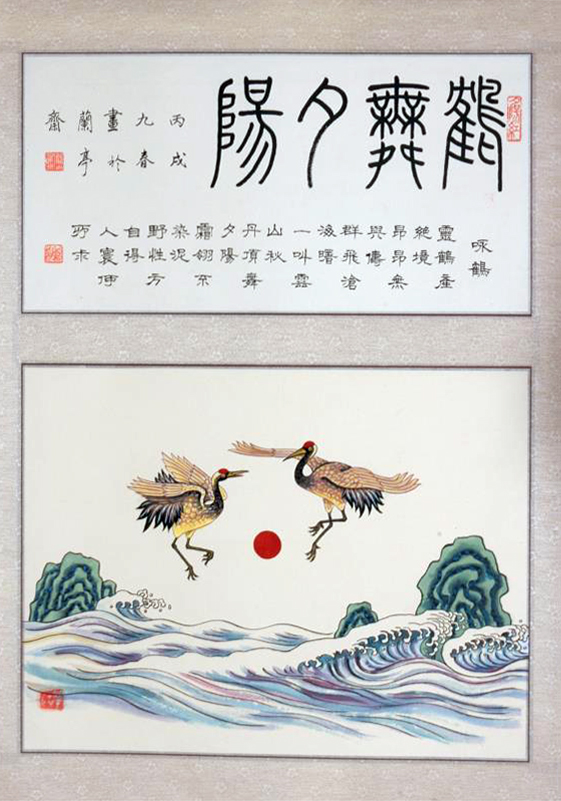 鶴舞夕陽
丙戌
九春
畫於
蘭亭
齋
咏鶴
靈鶴產
絕境
昂昂無
與儔
群飛滄
海曙
一叫雲
山秋
丹頂舞
夕陽
霜翎不
染泥
野性方
自得
人寰何
所求